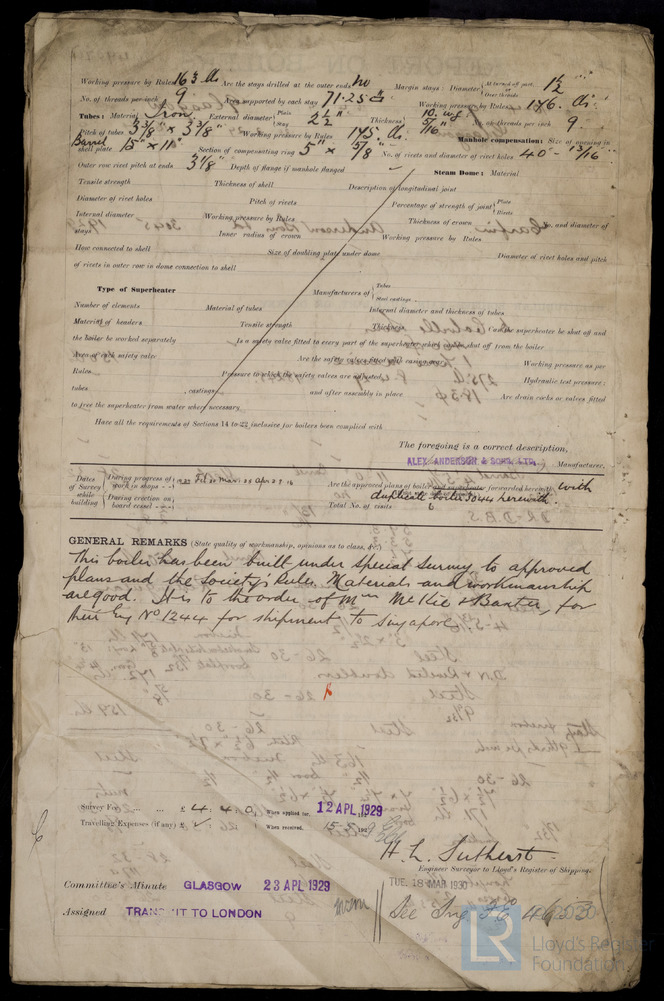 Working pressure by Rules 163 lbs Are the stays drilled at the outer ends no Margin stays: Diameter { At turned off part, or Over threads 1½"
No. of threads per inch 9 Area supported by each stay 71.25 Working pressure by Rules 176. lbs.
Tubes: Material Iron External diameter { Plain Stay 2½" Thickness 10 wg 5/16 No. of threads per inch 9.
Pitch of tubes 3⅜" x 3⅜" Working pressure by Rules 175. lbs. Manhole compensation: Size of opening in
shell plate Barrel 15" x 11" Section of compensating ring 5" x 5/8 No. of rivets and diameter of rivet holes 40 - 13/16
Outer row rivet pitch at ends 3⅛" Depth of flange if manhole flanged Steam Dome: Material
Tensile strength Thickness of shell Description of longitudinal joint
Diameter of rivet holes Pitch of rivets Percentage of strength of joint { Plate Rivets
Internal diameter Working pressure by Rules Thickness of crown No. and diameter of
stays Inner radius of crown Working pressure by Rules
How connected to shell Size of doubling plate under dome Diameter of rivet holes and pitch
of rivets in outer row in dome connection to shell
Type of Superheater Manufacturers of { Tubes Steel castings
Number of elements Material of tubes Internal diameter and thickness of tubes
Material of headers Tensile strength Thickness Can the superheater be shut off and
the boiler be worked separately Is a safety valve fitted to every part of the superheater which can be shut off from the boiler
Area of each safety valve Are the safety valves fitted with easing gear Working pressure as per
Rules Pressure to which the safety valves are adjusted Hydraulic test pressure:
tubes , castings and after assembly in place Are drain cocks or valves fitted
to free the superheater from water where necessary
Have all the requirements of Sections 14 to 22 inclusive for boilers been complied with
The foregoing is a correct description,
ALEX. ANDERSON & SONS, LTD. Manufacturer.
Dates of Survey while building { During progress of work in shops - - During erection on board vessel - - - } 1929 Feb 20 Mar. 25 Apr 2 9 16 Are the approved plans of boiler and superheater forwarded herewith with
duplicate boiler 3044 herewith.
Total No. of visits
GENERAL REMARKS (State quality of workmanship, opinions as to class, &c.)
This boiler has been built under Special Survey to approved
plans and the Society's Rules. Materials and workmanship
are good. It is to the order of Mess McKie & Baxter, for
their Eng No 1244 for shipment to Singapore.
Survey Fee ... ... £ 4. 4. 0, When applied for, 12 APL 1929
Travelling Expenses (if any) £ When received, 192
H. L. Sutherst.
Engineer Surveyor to Lloyd's Register of Shipping.
Committee's Minute GLASGOW 23 APL 1929 TUE. 18 MAR 1930
Assigned TRANSMIT TO LONDON See Ing. F.E.
LR Lloyd's Register
Foundation